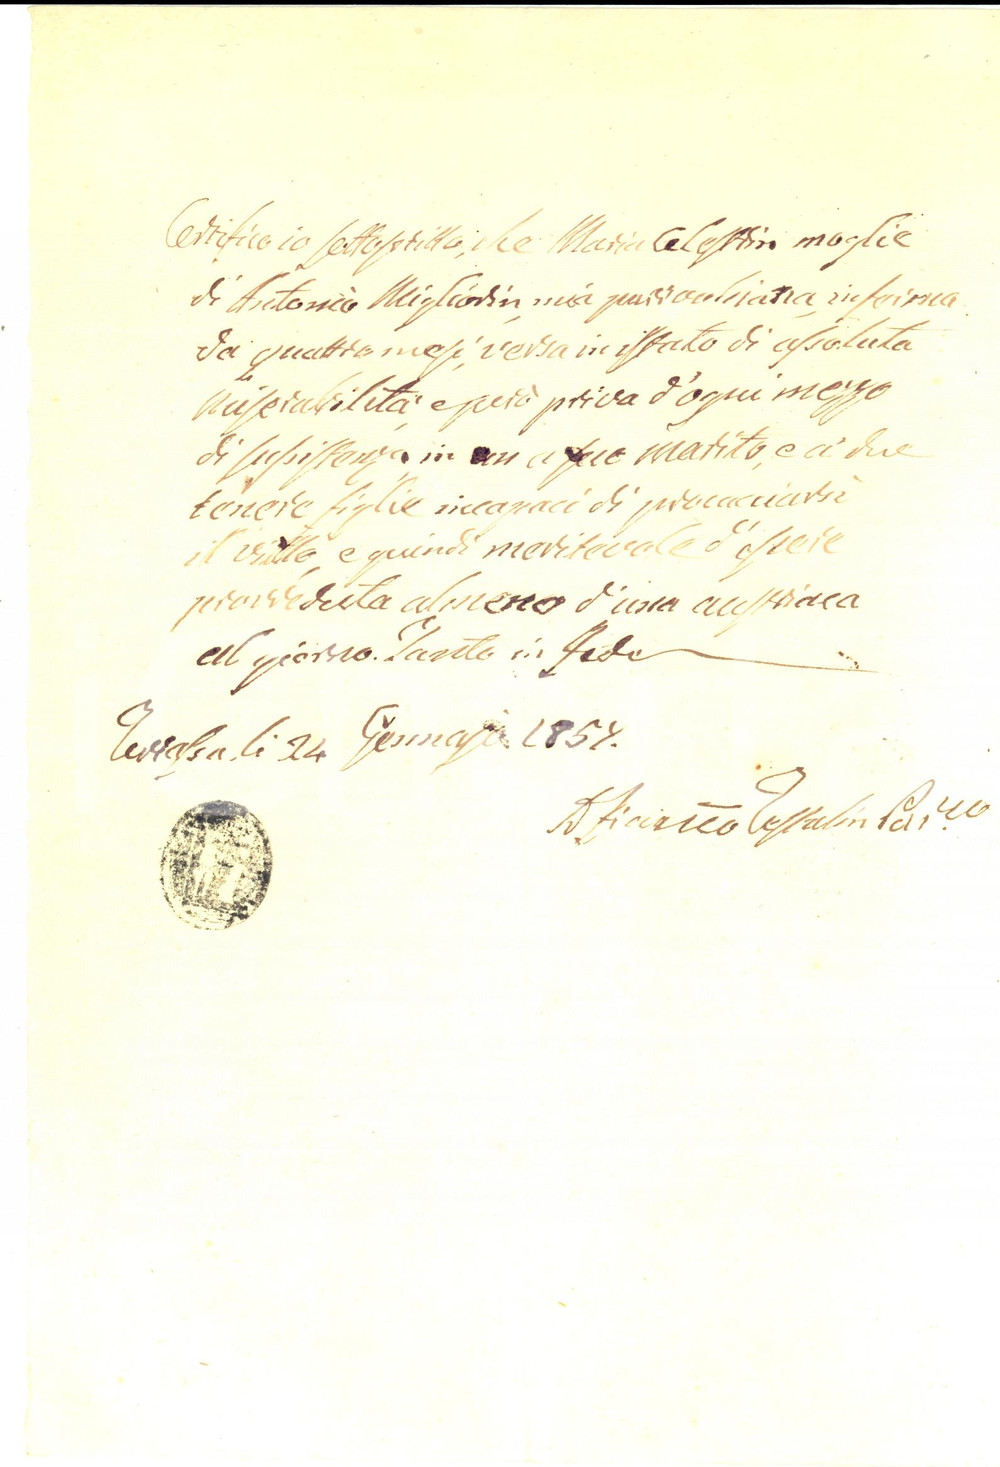 Certifico io sottoscritto, che Maria Celestin moglie
di Antonio Migliorin, mia parrocchiana, inferma
da quattro mesi, versa in istato di assoluta
miserabilità, e però priva d'ogni mezzo
di sussistenza in un a suo Marito, e a due
tenere figlie incapaci di procacciarsi
il vitto, e quindi meritevole d'essere
provveduta almeno d'una austriaca
al giorno. Tanto in Fede
li 24 Gennajo 1854.
Tessalin